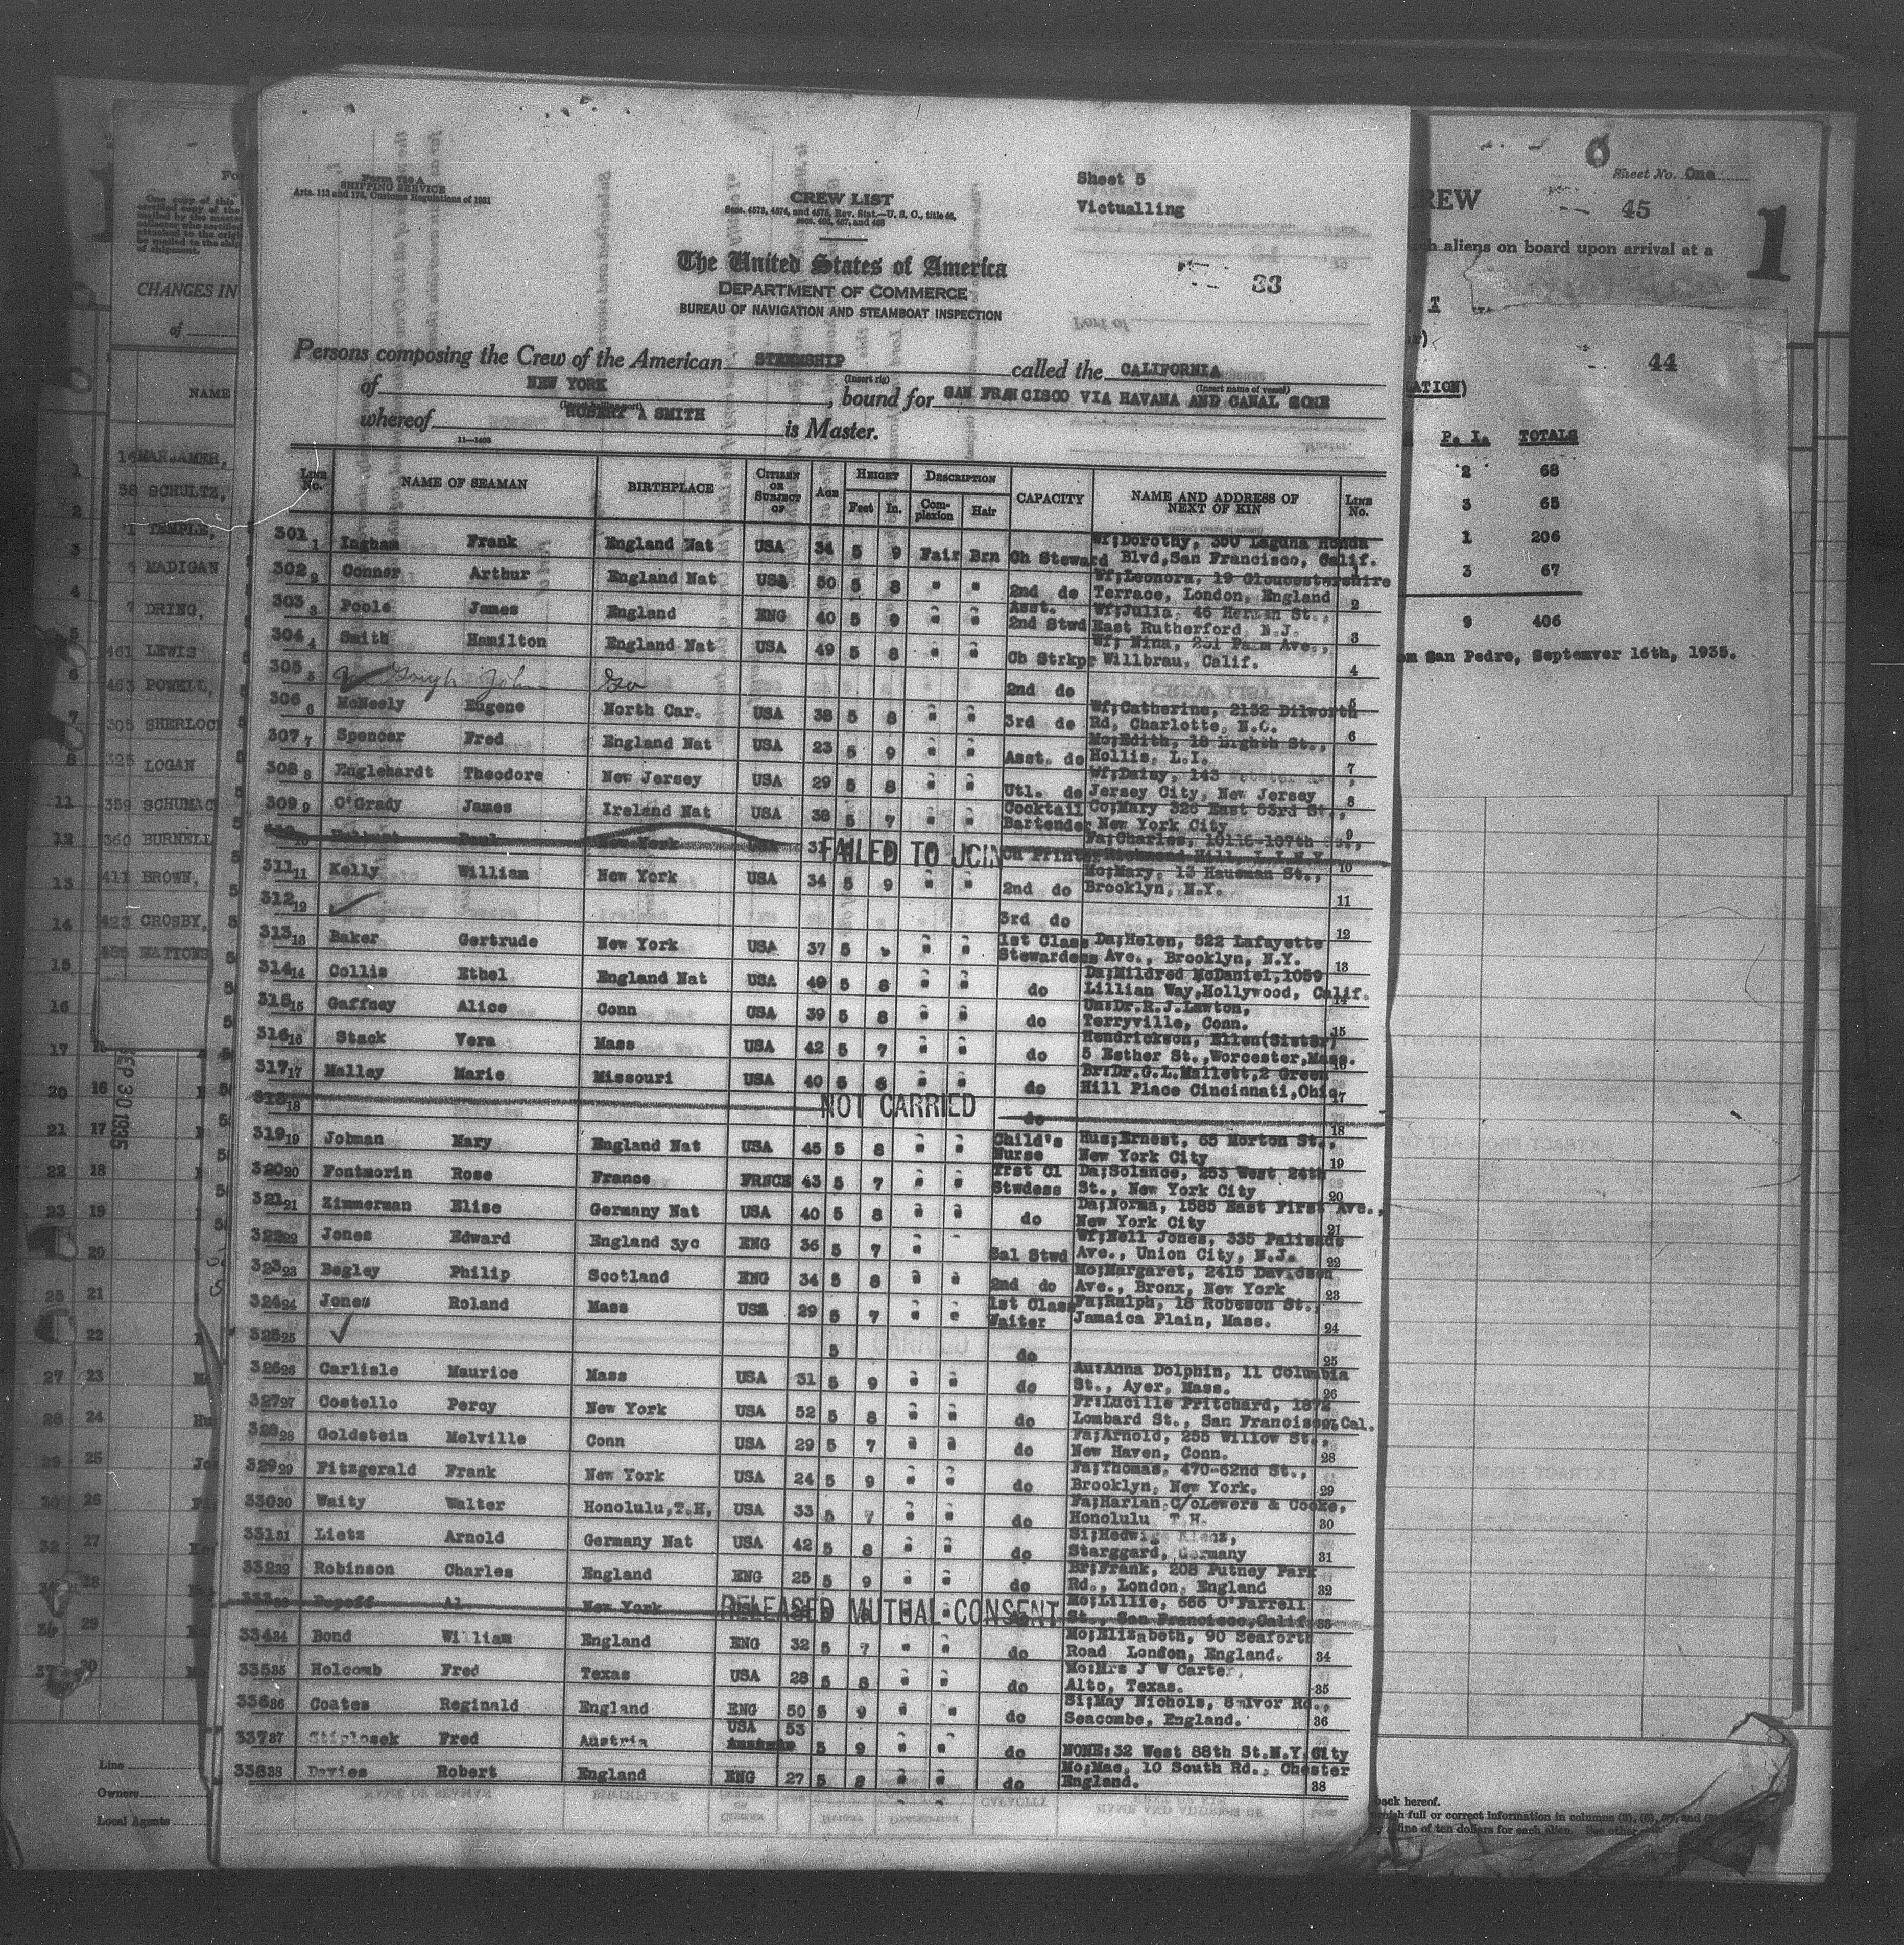 Form 710 A
SHIPPING SERVICE
Arts. 113 and 176, Customs Regulations of 1931
CREW LIST
Secs. 4573, 4574, and 4575, Rev. Stat.—U. S. C., title 46,
secs. 465, 467, and 468
Sheet 5
Victualling
33
The United States of America
DEPARTMENT OF COMMERCE
BUREAU OF NAVIGATION AND STEAMBOAT INSPECTION
Persons composing the Crew of the American STEAMSHIP called the CALIFORNIA
(Insert rig) (Insert name of vessel)
of NEW YORK, bound for SAN FRANCISCO VIA HAVANA AND CANAL ZONE
whereof ROBERT A SMITH is Master.
11—1403
LINE No. NAME OF SEAMAN BIRTHPLACE CITIZEN OR SUBJECT OF AGE HEIGHT Feet In. DESCRIPTION Complexion Hair CAPACITY NAME AND ADDRESS OF NEXT OF KIN LINE No.
301 1 Ingham Frank England Nat USA 34 5 9 Fair Brn Ch Steward Wf;Dorothy, 350 Laguna Honda Blvd,San Francisco, Calif. 1
302 2 Connor Arthur England Nat USA 50 5 8 " " 2nd do Wf;Leonora, 19 Gloucestershire Terrace, London, England 2
303 3 Poole James England ENG 40 5 9 " " Asst. 2nd Stwd Wf;Julia, 46 Herman St., East Rutherford, N.J. 3
304 4 Smith Hamilton England Nat USA 49 5 8 " " Ch Strkpr Wf; Nina, 251 Palm Ave., Willbrau, Calif. 4
305 5 Gough John 2nd do 5
306 6 McNeely Eugene North Car. USA 38 5 8 " " 3rd do Wf;Catherine, 2132 Dilworth Rd, Charlotte, N.C. 6
307 7 Spencer Fred England Nat USA 23 5 9 " " Asst. do Mo;Edith, 18 Eighth St., Hollis, L.I. 7
308 8 Englehardt Theodore New Jersey USA 29 5 8 " " Utl. do Wf;Daisy, 143 Webster Ave, Jersey City, New Jersey 8
309 9 O'Grady James Ireland Nat USA 38 5 7 " " Cocktail Bartender Co;Mary 325 East 53rd St., New York City 9
10 Paul New York USA FAILED TO JOIN Ch Printer Fa;Charles, 10116-107th St., Richmond Hill, L.I.N.Y. 10
311 11 Kelly William New York USA 34 5 9 " " 2nd do Mo;Mary, 13 Hausman St., Brooklyn, N.Y. 11
312 12 3rd do 12
313 13 Baker Gertrude New York USA 37 5 " " 1st Class Stewardess Da;Helen, 522 Lafayette Ave., Brooklyn, N.Y. 13
314 14 Collis Ethel England Nat USA 49 5 8 " " do Da;Mildred McDaniel,1059 Lillian Way,Hollywood, Calif. 14
315 15 Gaffney Alice Conn USA 39 5 8 " " do Un:Dr.R.J.Lawton, Terryville, Conn. 15
316 16 Stack Vera Mass USA 42 5 7 " " do Hendrickson, Ellen(Sister) 5 Esther St.,Worcester,Mass. 16
317 17 Malley Marie Missouri USA 40 5 8 " " do Br:Dr.G.L.Mallett,2 Green Hill Place Cincinnati,Ohio 17
318 18 NOT CARRIED do 18
319 19 Jobman Mary England Nat USA 45 5 8 " " Child's Nurse Hus;Ernest, 65 Morton St., New York City 19
320 20 Fontmorin Rose France FRNCE 43 5 7 " " Trst Cl Stwdess Da;Solance, 253 West 24th St., New York City 20
321 21 Zimmerman Elise Germany Nat USA 40 5 8 " " do Da;Norma, 1585 East First Ave., New York City 21
322 22 Jones Edward England 3yc ENG 36 5 7 " " Sal Stwd Wf;Nell Jones, 335 Palisade Ave., Union City, N.J. 22
323 23 Begley Philip Scotland ENG 34 5 8 " " 2nd do Mo;Margaret, 2415 Davidson Ave., Bronx, New York 23
324 24 Jones Roland Mass USA 29 5 7 " " 1st Class Waiter Fa;Ralph, 18 Robeson St., Jamaica Plain, Mass. 24
325 25 5 do 25
326 26 Carlisle Maurice Mass USA 31 5 9 " " do Au:Anna Dolphin, 11 Columbia St., Ayer, Mass. 26
327 27 Costello Percy New York USA 52 5 8 " " do Fr:Lucille Pritchard, 1872 Lombard St., San Francisco,Cal. 27
328 28 Goldstein Melville Conn USA 29 5 7 " " do Fa;Arnold, 255 Willow St., New Haven, Conn. 28
329 29 Fitzgerald Frank New York USA 24 5 9 " " do Fa;Thomas, 470-62nd St., Brooklyn, New York. 29
330 30 Waity Walter Honolulu,T.H, USA 33 5 7 " " do Fa;Harlan,C/oLewers & Cooke, Honolulu T.H. 30
331 31 Lietz Arnold Germany Nat USA 42 5 8 " " do Si;Hedwig Starggard, Germany 31
332 32 Robinson Charles England ENG 25 5 9 " " do Br;Frank, 208 Putney Park Rd., London, England 32
333 33 Popoff Al New York RELEASED MUTUAL CONSENT Mo;Lillie, 566 O'Farrell St., San Francisco,Calif. 33
334 34 Bond William England ENG 32 5 7 " " do Mo;Elizabeth, 90 Seaforth Road London, England. 34
335 35 Holcomb Fred Texas USA 28 5 8 " " do Mo:Mrs J W Carter, Alto, Texas. 35
336 36 Coates Reginald England ENG 50 5 9 " " do Si;May Nichols, 8 Ivor Rd., Seacombe, England. 36
337 37 Stiplosek Fred Austria USA 53 5 9 " " do NONE:32 West 88th St.N.Y.City
338 38 Davies Robert England ENG 27 5 8 " " do Mo;Mae, 10 South Rd., Chester England. 38
CHANGES IN
of
NAME
16 MARJAMER,
58 SCHULTZ,
TEMPLE,
MADIGAN
7 DRING,
461 LEWIS
463 POWELL,
305 SHERLOC
325 LOGAN
359 SCHUMAC
360 BURNELL
411 BROWN,
423 CROSBY,
485 NATIONS
SEP 30 1935
Line
Owners
Local Agents
Sheet No. One
REW
45
1
aliens on board upon arrival at a
44
P. I. TOTALS
2 68
3 65
1 206
3 67
9 406
San Pedro, September 16th, 1935.
back hereof.
full or correct information in columns
fine of ten dollars for each alien.